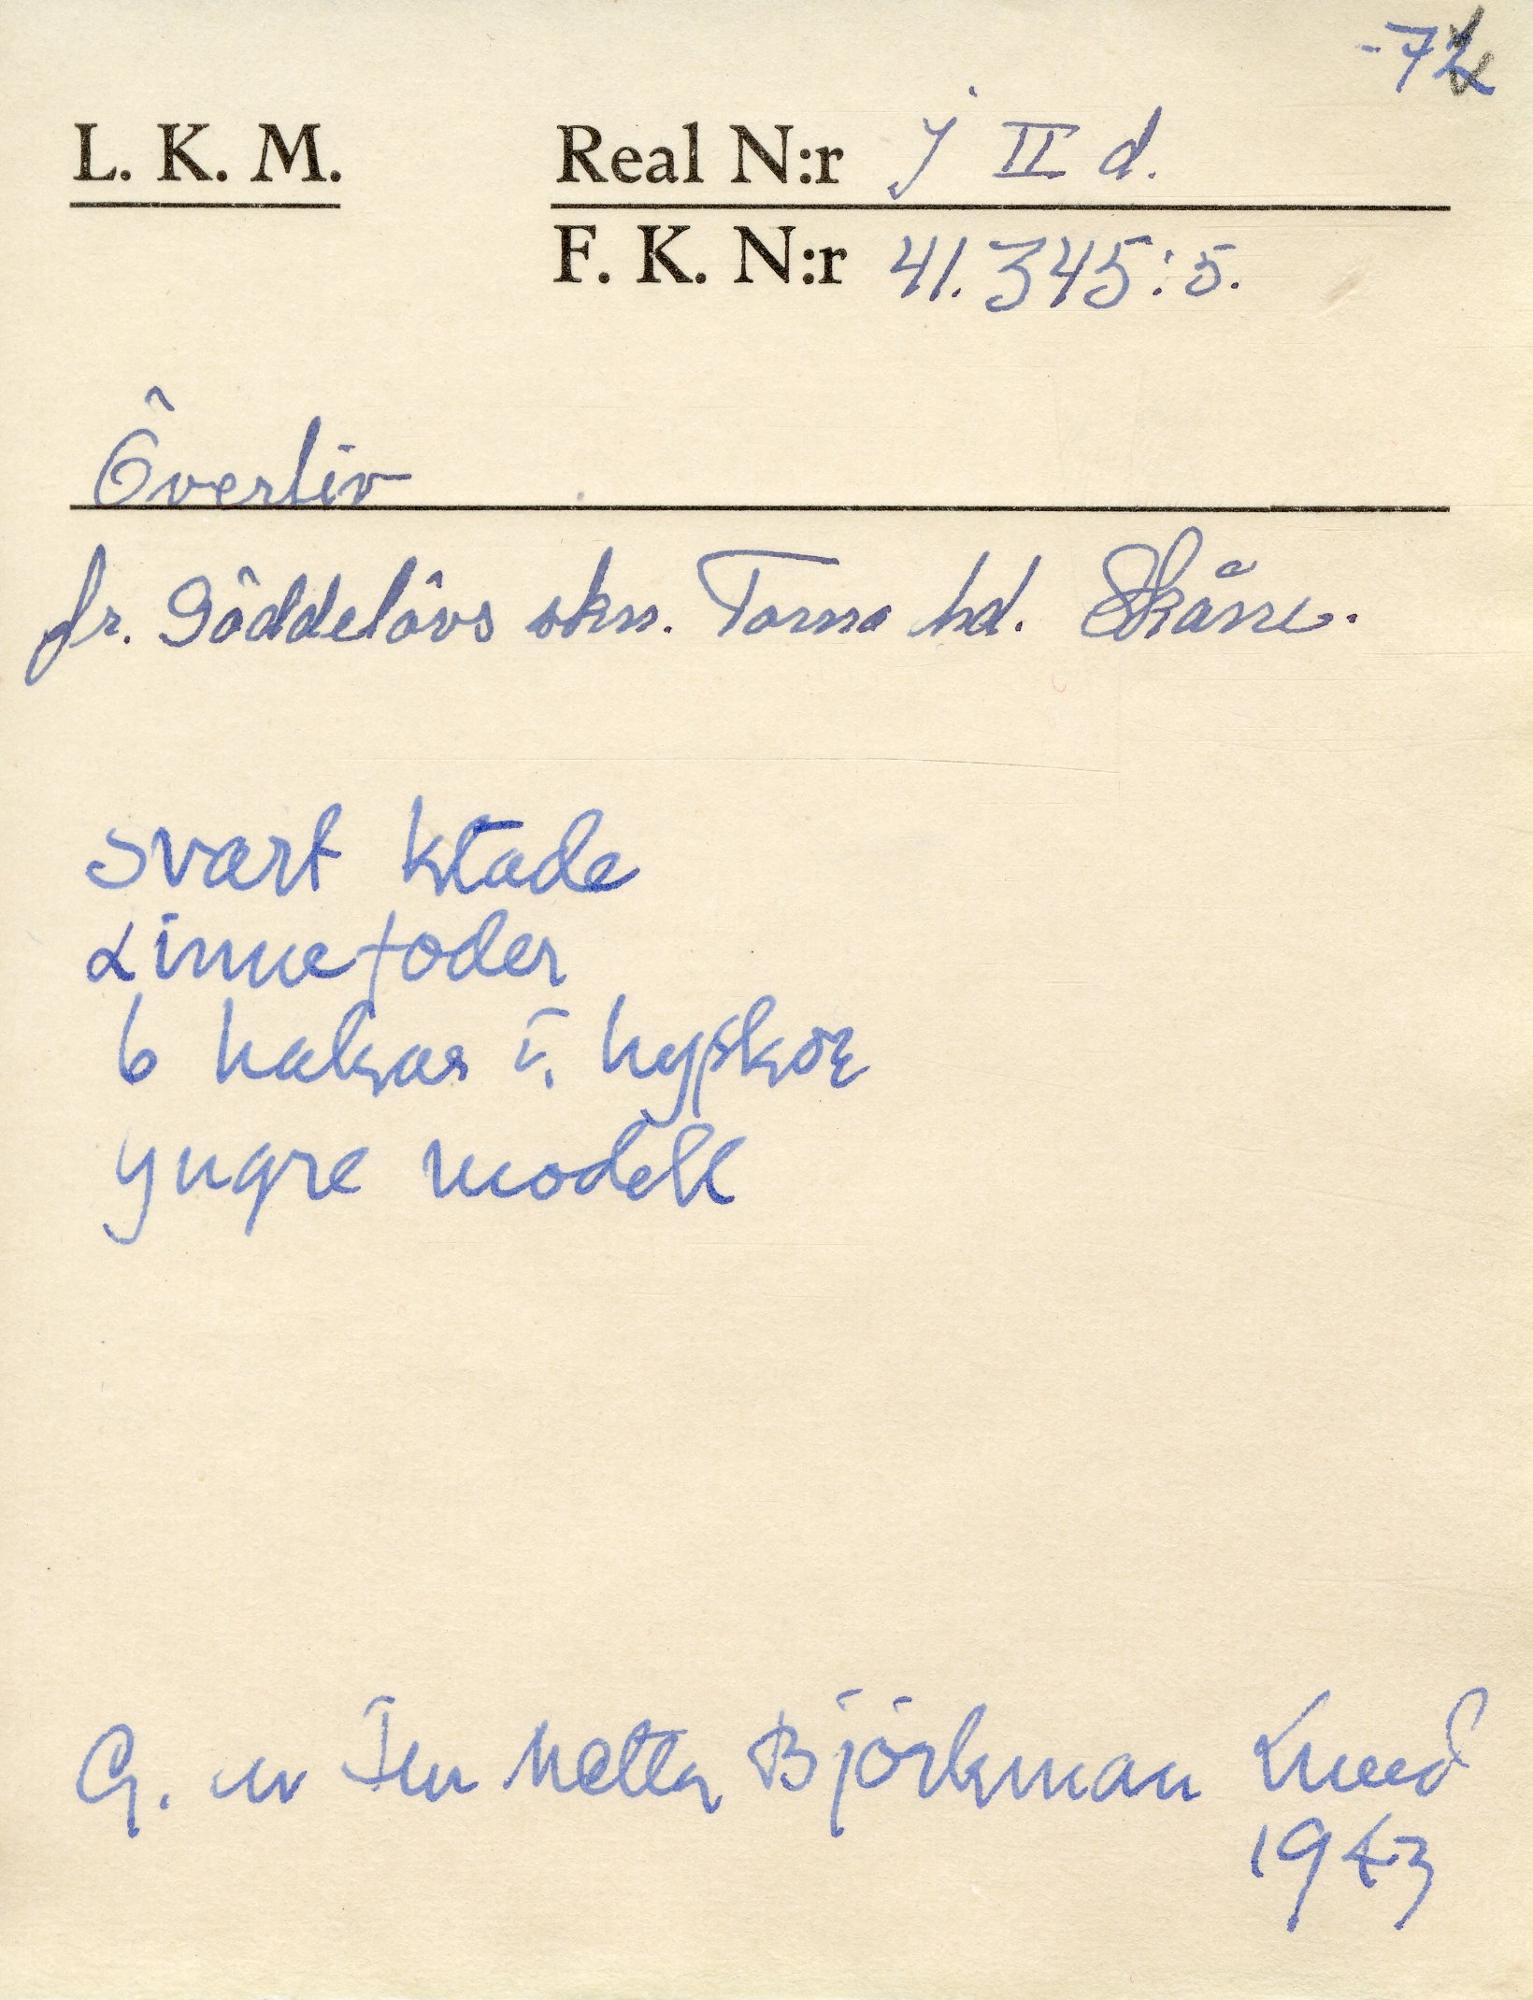 -72
L. K. M.
Real N:r j II d.
F. K. N:r 41.345:5.
Överliv
fr. Göddelövs skn. Torna hd. Skåne.
svart kläde
Linnefoder
6 hakar i. hyskor
yngre modell
G. av Fru Metta Björkman Lund
1943